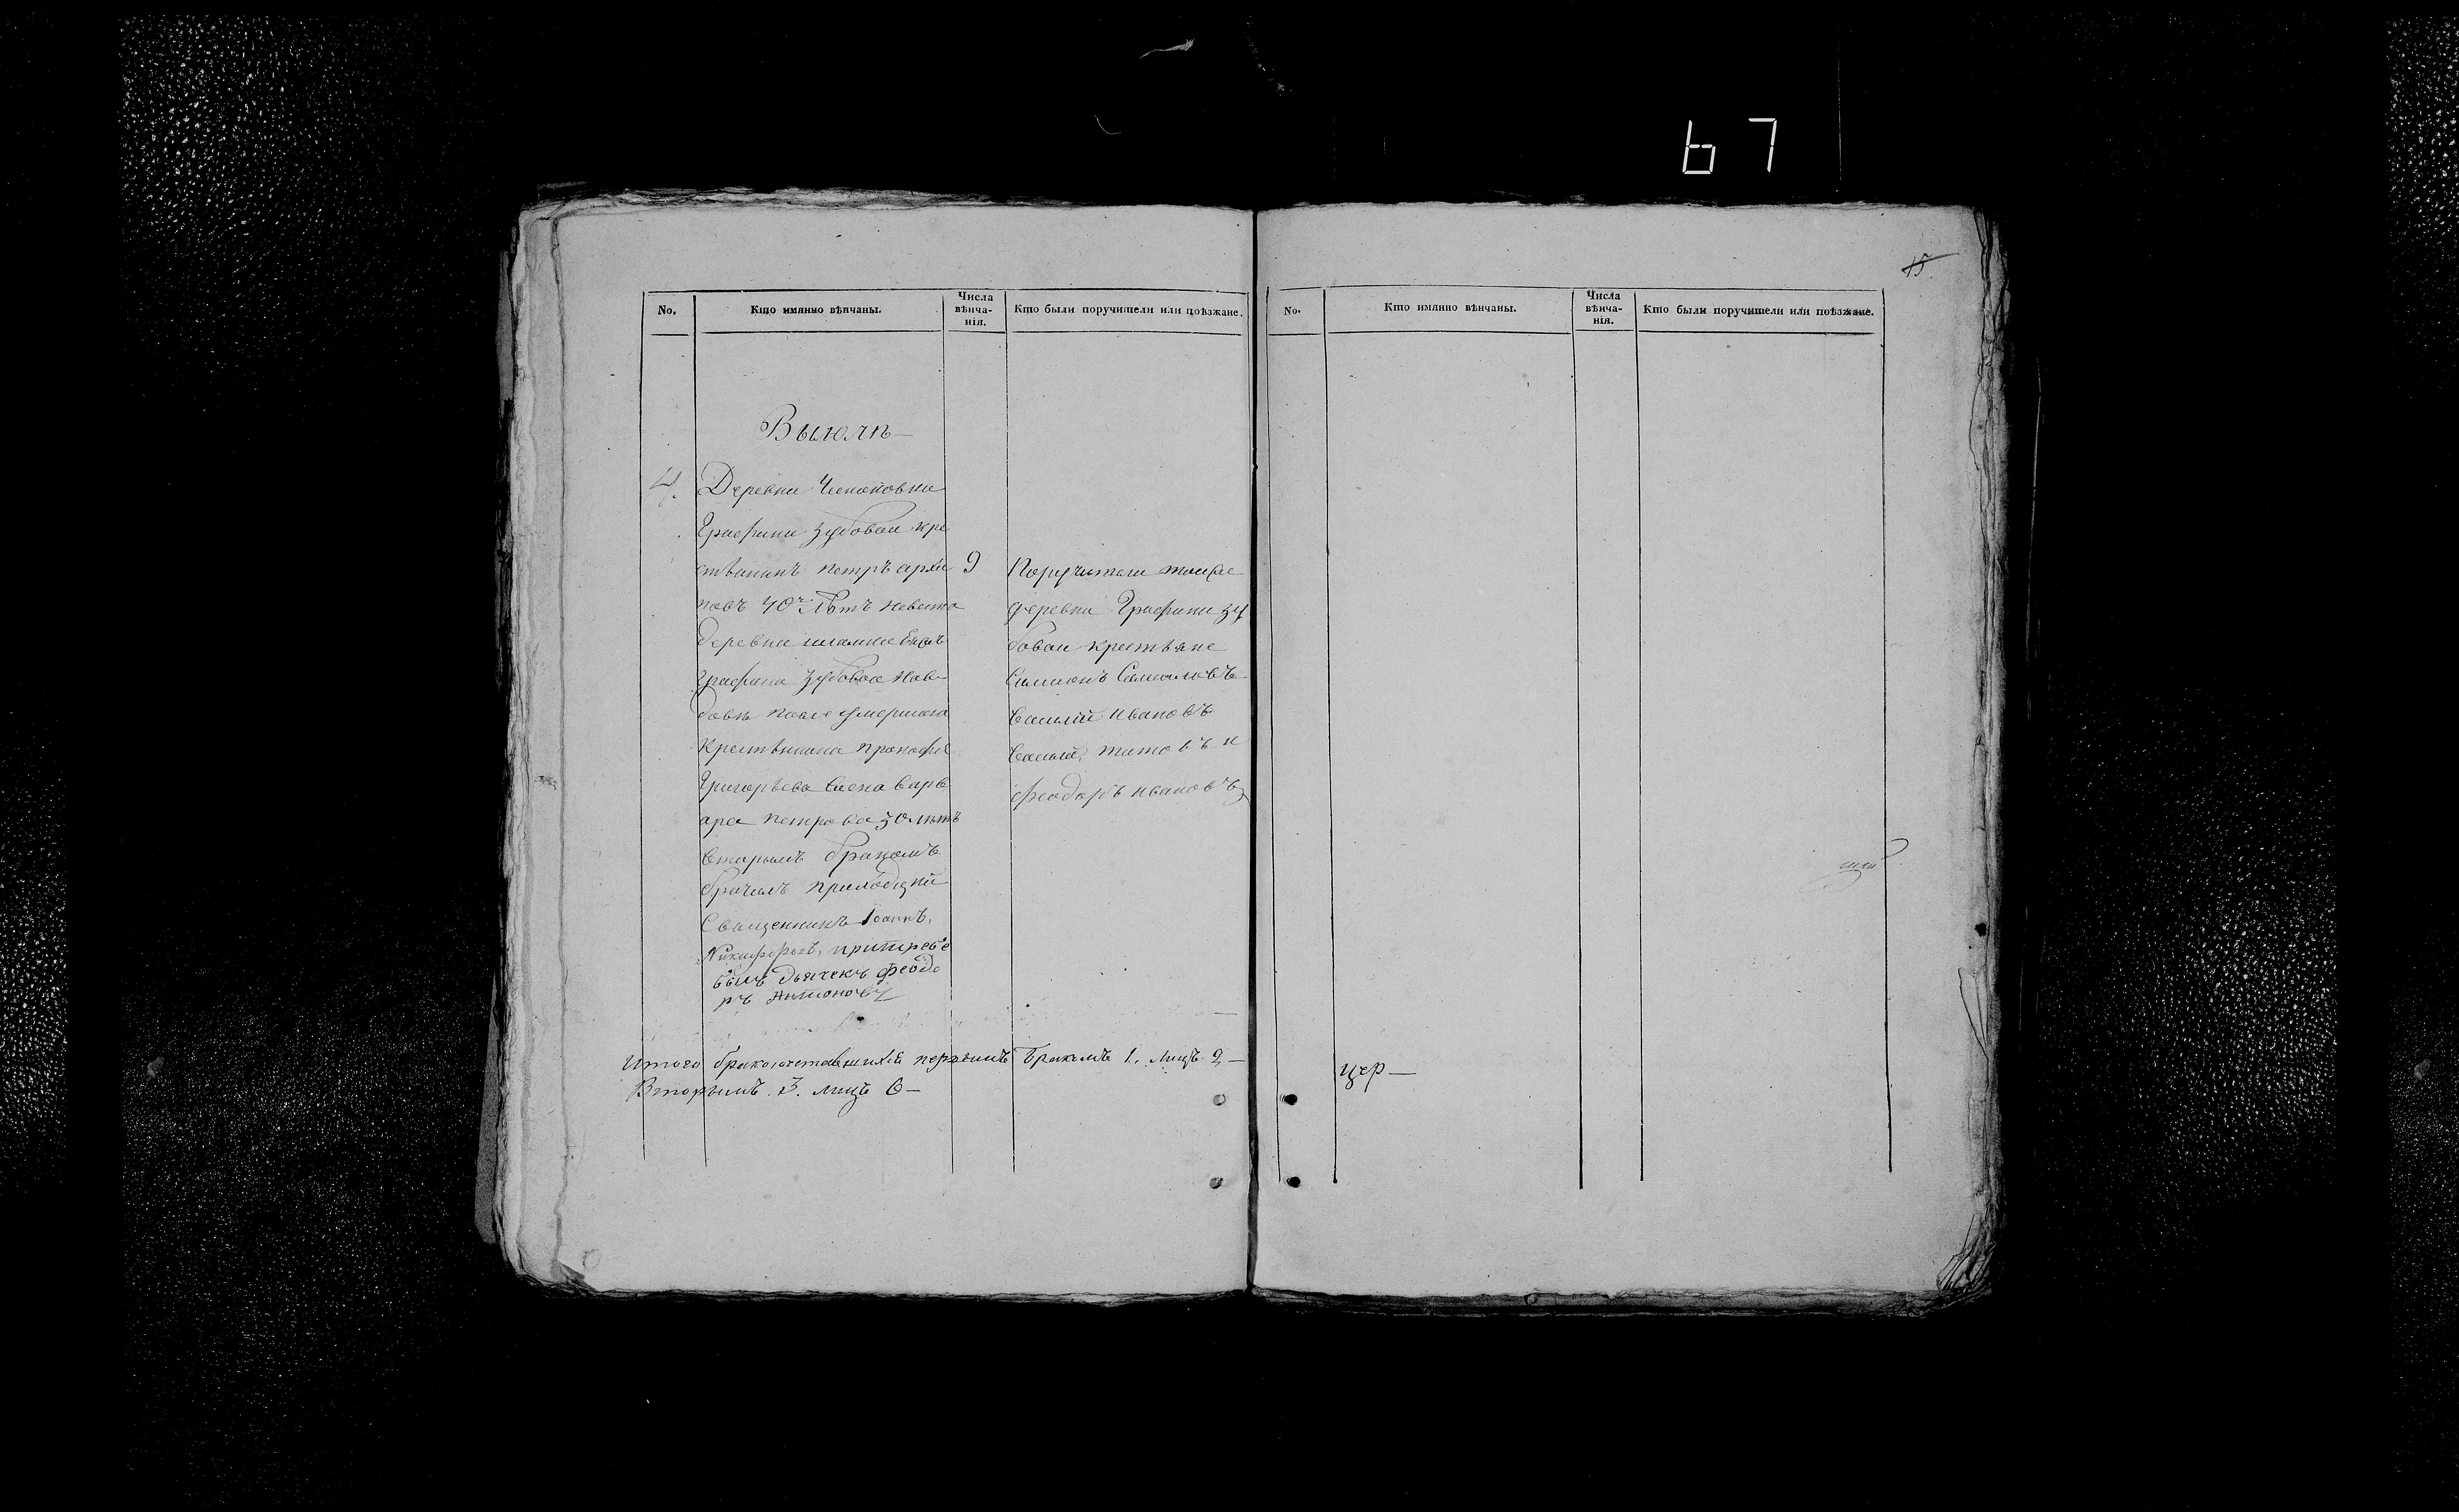 67
15.
No.
Кто имянно вѣнчаны.
Числа вѣнча-нія.
Кто были поручители или поѣзжане.
Выюлѣ
4.
Деревни
Графини Зубовой кре
стьянинъ петръ архи
повъ 40 лѣтъ невеста
деревни
Графини Зубовой
довѣ после умершаго
крестьянина прокофья
Григорьева жена варв
ара петрова 30 лѣтъ
вторымъ бракомъ
бракъ приходский
Священникъ Іоаннъ
Никифоровъ, притребѣ
былъ дьячекъ феодо
ръ Антоновъ
9
Поручители тойже
деревни Графини зу
бовой крестьяне
Симионъ Самойловъ
Василий ивановъ
Василий титовъ и
феодоръ ивановъ
Итого бракосочетавшихся первымъ бракомъ 1. лицъ 2
Вторымъ 3. лицъ 6
No.
Кто имянно вѣнчаны.
Числа вѣнча-нія.
Кто были поручители или поѣзжане.
цер